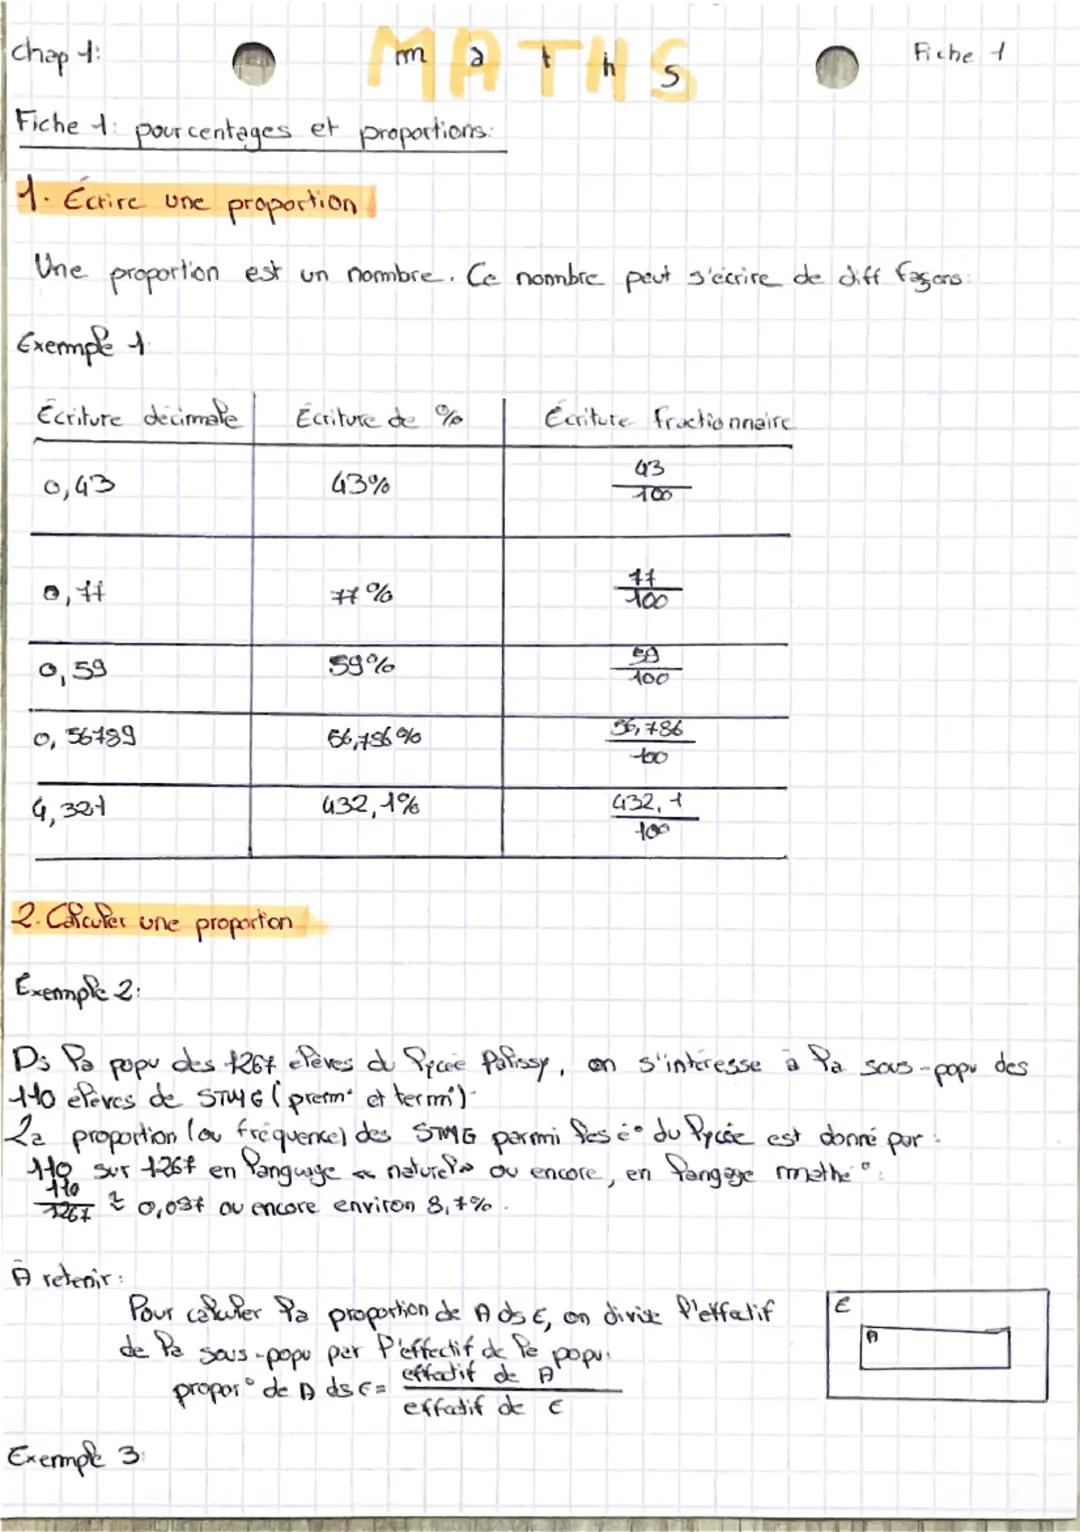 Chap 1:
MATHS
m a t h s
Fiche 1
Fiche 1: pourcentages et proportions:
1. Écrire une proportion
Une proportion est un nombre. Ce nombre peut s'écrire de diff façons:
Exemple 1:
Écriture décimale Écriture de % Écriture fractionnaire
0,43 43% 43/100
0,77 77% 77/100
0,59 59% 59/100
0,56789 56,786% 56,786/100
4,321 432,1% 432,1/100
2. Calculer une proportion
Exemple 2:
Ds la popu des 1267 élèves du lycée Palissy, on s'intéresse à la sous-popu des
110 élèves de STMG (prem° et term°).
La proportion (ou fréquence) des STMG parmi les é° du lycée est donné par:
110 sur 1267 en language « naturel » ou encore, en langage mathé°:
110/1267 ≈ 0,087 ou encore environ 8,7%.
À retenir:
Pour calculer la proportion de A ds E, on divise l'effectif
de la sous-popu par l'effectif de la popu:
propor° de A ds E = effectif de A / effectif de E
E
A
Exemple 3: